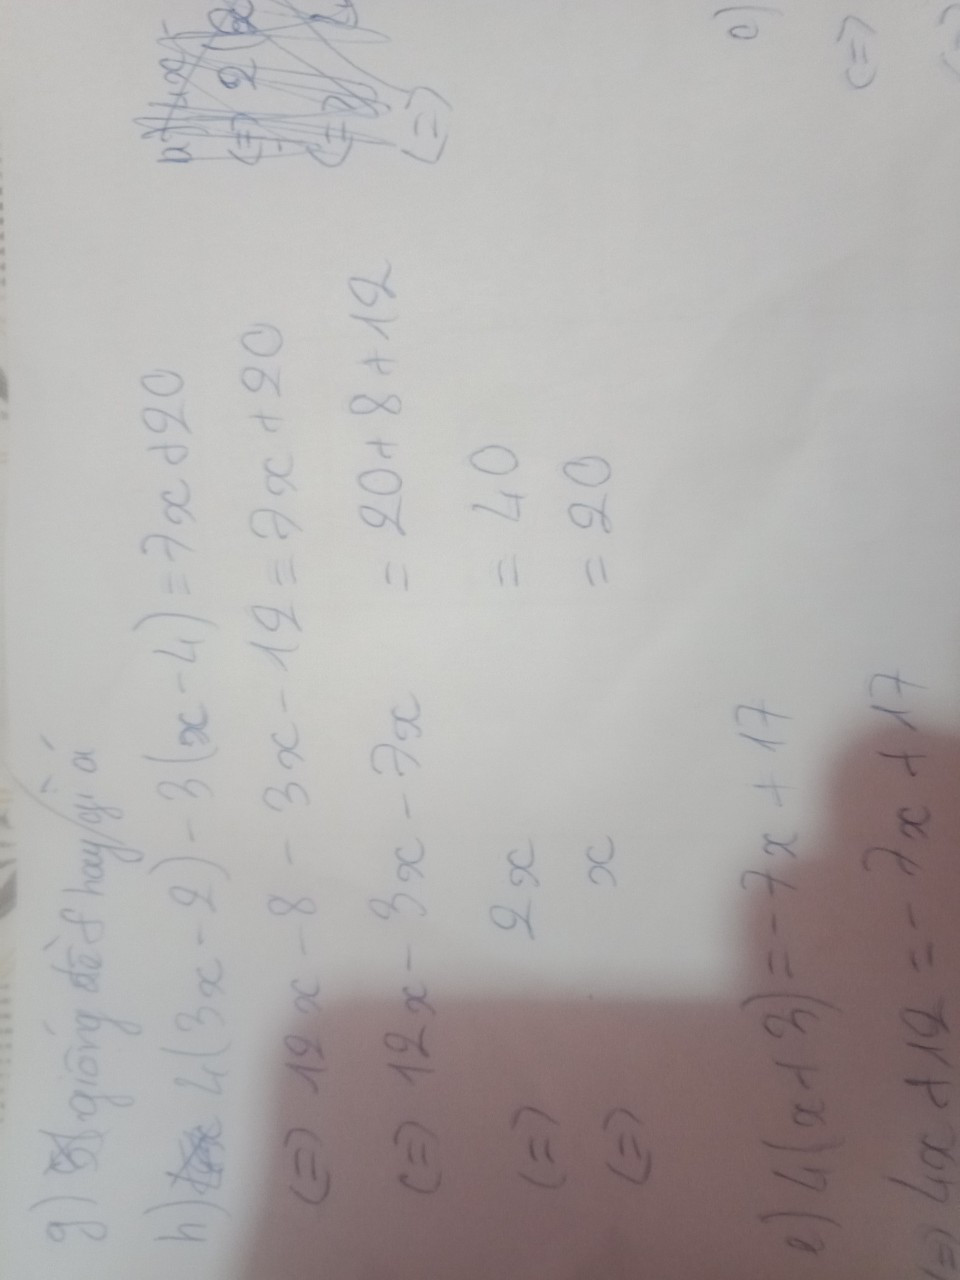 g) giống đề f hay gì á
h) 4(3x-2)-3(x-4)=7x+20
(=) 12x-8-3x-12=7x+20
(=) 12x-3x-7x = 20+8+12
(=) 2x = 40
(=) x = 20
e) 4(x+3)=-7x+17
(=) 4x+12=-7x+17
(=) 2
(=)
(=)
c)
(=)
(=)